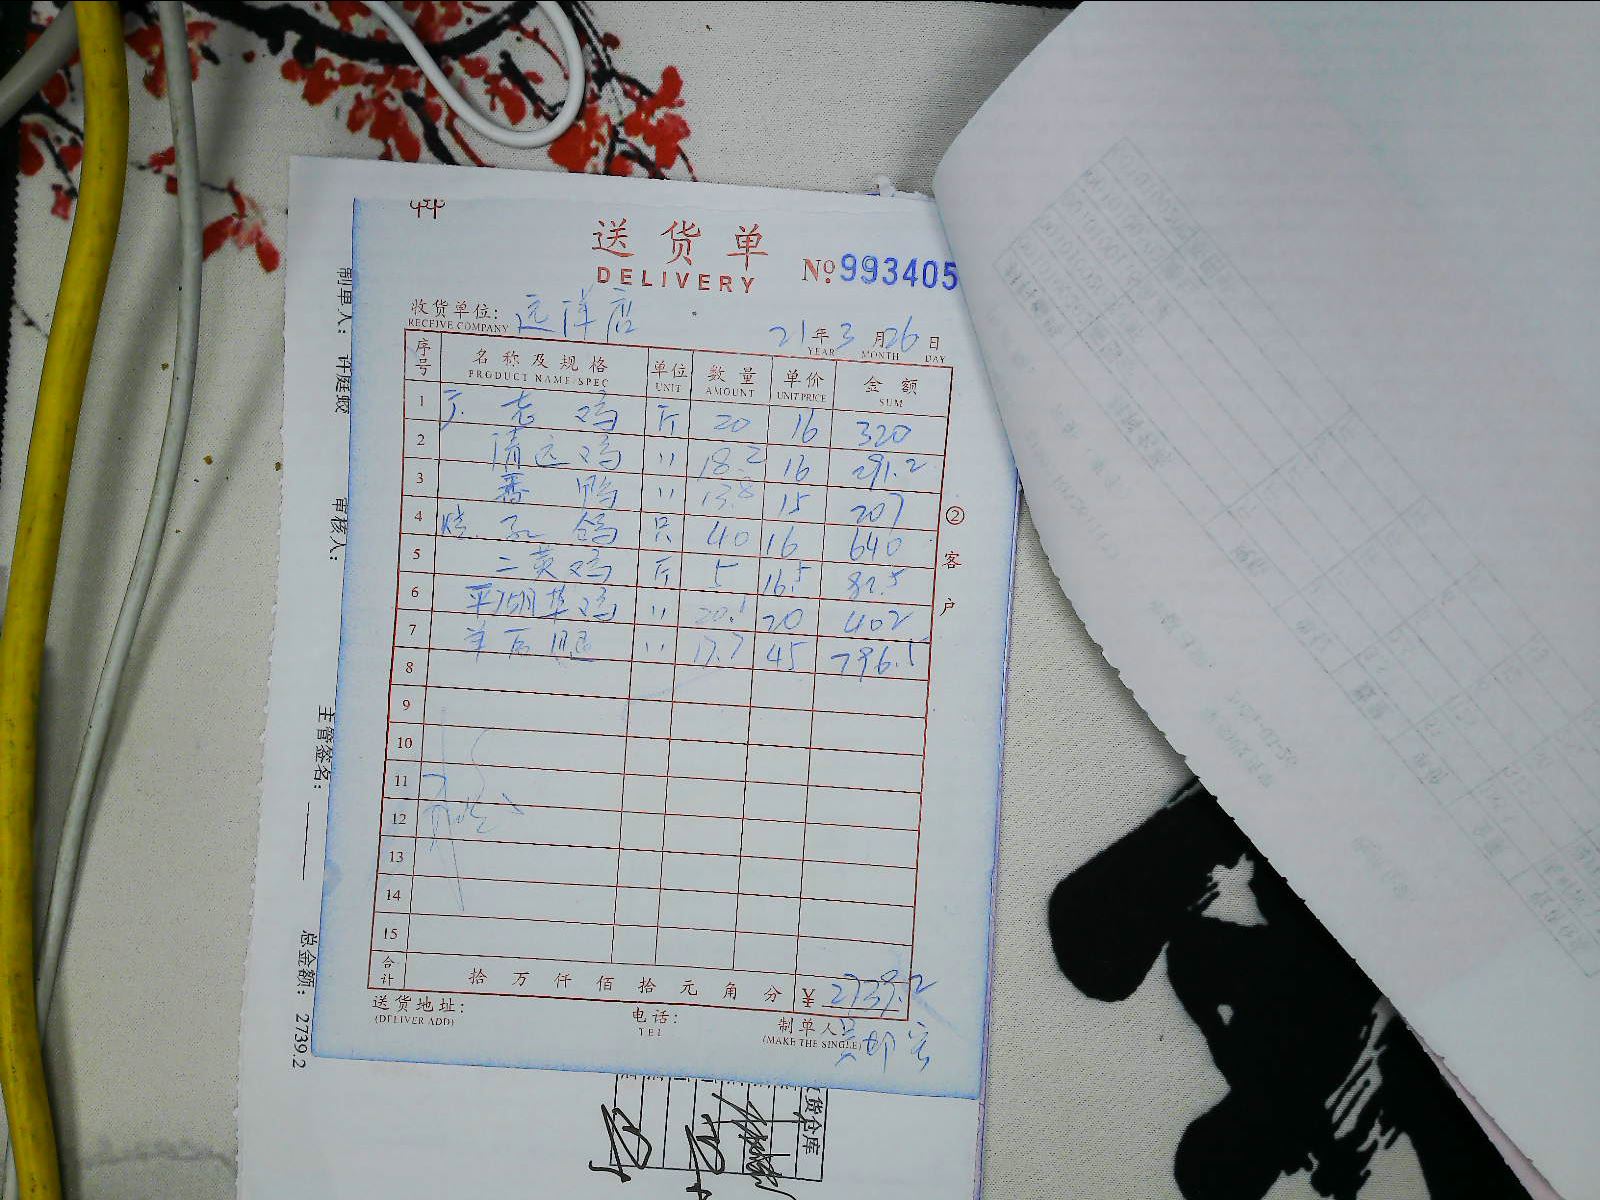 送货单
DELIVERY
No.993405
收货单位: 远洋店
RECEIVE COMPANY
21年3月26日
YEAR MONTH DAY
序号 名称及规格 单位 数量 单价 金额
PRODUCT NAME/SPEC UNIT AMOUNT UNIT PRICE SUM
1 老鸡 斤 20 16 320
2 清远鸡 〃 18.2 16 291.2
3 番鸭 〃 13.8 15 207
4 鸽 只 40 16 640
5 三黄鸡 斤 5 16.5 82.5
6 鸡 〃 20.1 20 402
7 羊后腿 〃 17.7 45 796.5
8
9
10
11
12
13
14
15
合计 拾万仟佰拾元角分 ¥2739.2
送货地址: 电话: 制单人
(DELIVER ADD) TEL (MAKE THE SINGLE)
②客户
制单人: 许庭蛟
审核人:
主管签名:
总金额: 2739.2
货仓库